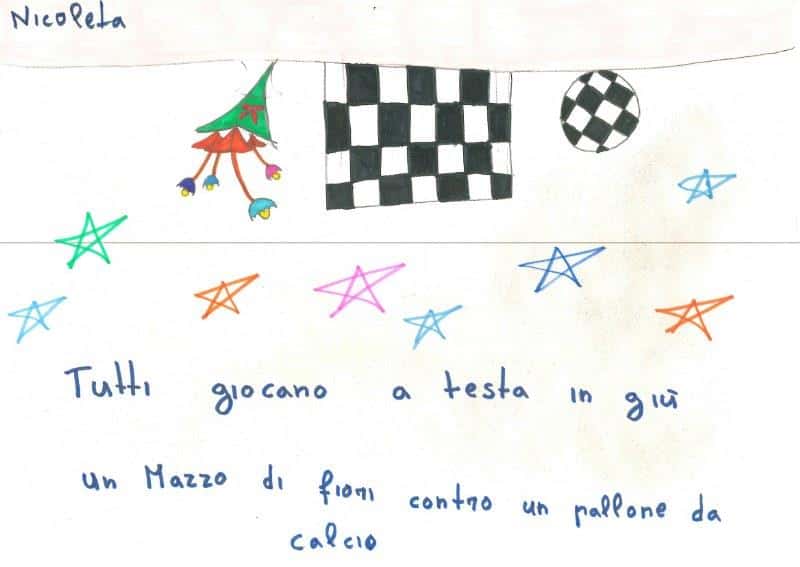 Nicoleta
Tutti giocano a testa in giù
un Mazzo di fiori contro un pallone da
calcio